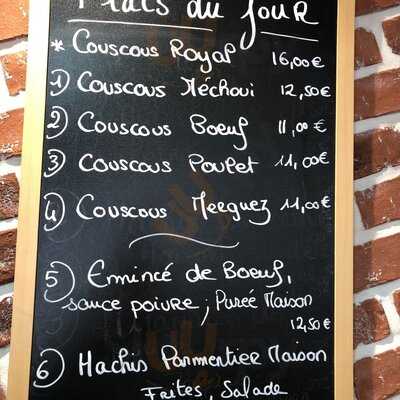 Plats du Jour
* Couscous Royal 16,00€
1) Couscous Méchoui 12,50€
2) Couscous Boeuf 11,00€
3) Couscous Poulet 11,00€
4) Couscous Merguez 11,00€
5) Emincé de Boeuf,
sauce poivre, Purée Maison
12,50€
6) Hachis Parmentier Maison
Frites, Salade